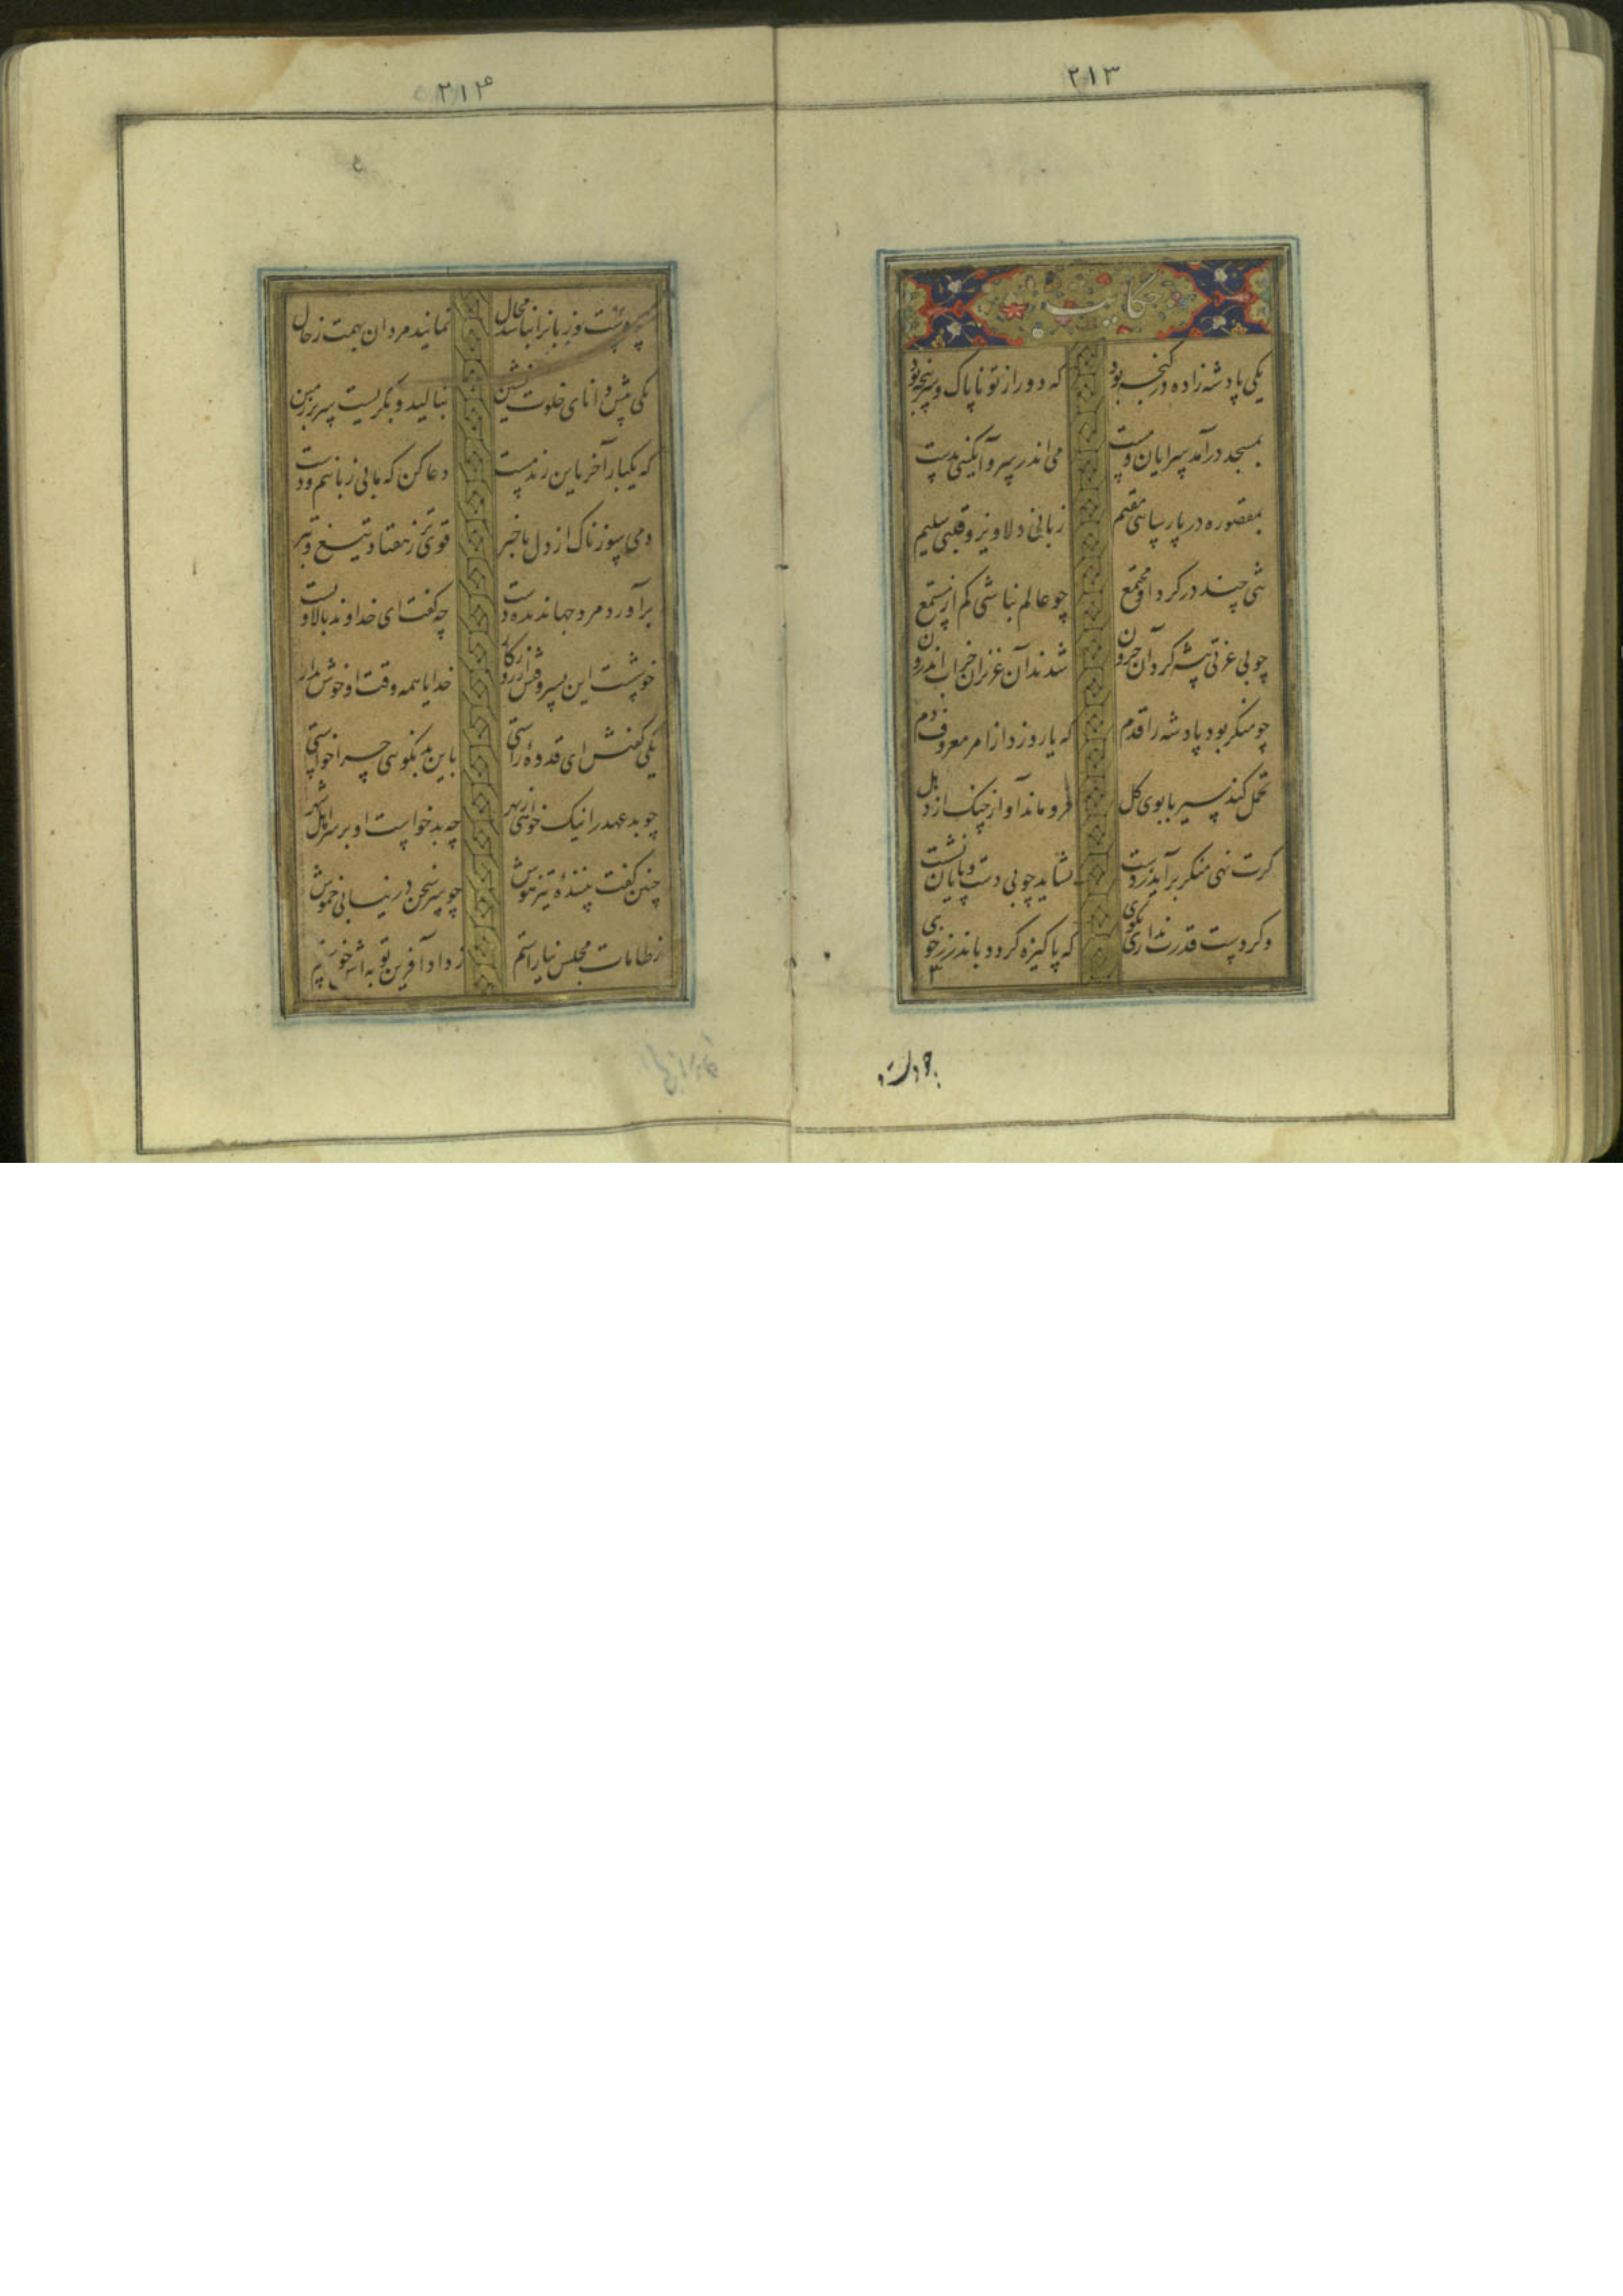 ۲۱۳
حکایت
یکی پادشه زاده در گنجه بود که دور از تو ناپاک و سرپنجه بود
بمسجد درآمد سرایان و مست می اندر سر و آبگینی بدست
بمقصوره در پارسائی مقیم زبانی دلاویز و قلبی سلیم
تنی چند در گرد او مجتمع چو عالم نباشی کم از مستمع
چو بی عزتی پیشه کرد آن حرون شدند آن عزیزان خراب اندرون
چو منکر بود پادشه را قدم که یارد زد از امر معروف دم
تحمل کند سیر با بوی گل فرو ماند آواز چنگ از دهل
کرت نهی منکر برآید ز دست نشاید چو بی دست و پایان نشست
و کر دست قدرت نداری بگوی که پاکیزه کردد باندرز خوی
۲۱۴
چو دست و زبانرا نباشد مجال نمانید مردان بهمت ز حال
یکی پیش دانای خلوت نشین بنالید و بگریست سر بر زمین
که یکبار آخر باین رند مست دعا کن که ما بی زبانیم و دست
دمی سوزناک از دل با خبر قوی تر ز هفتاد تیغ و تبر
برآورد مرد جهاندیده دست چه گفت ای خداوند بالا و پست
خوشست این پسر وقتش از روزگار خدایا همه وقت او خوش بدار
یکی گفتش ای قدوه راستی باین بد نکوئی چرا خواستی
چو بد عهد را نیک خواهی ز بهر چه بد خواست او بر سر اهل شهر
چنین گفت بیننده تیز هوش چو سر سخن در نیابی خموش
ز طامات مجلس نیاراستم ز داد آفرین توبه اش خواستم